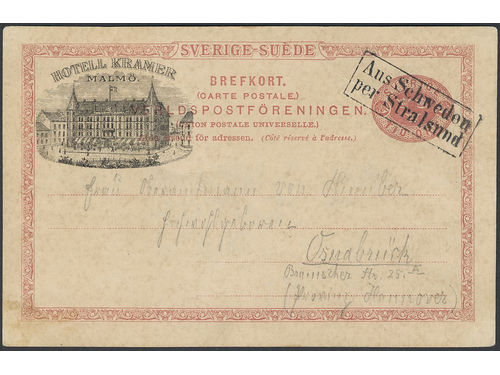 SVERIGE-SUÈDE
HOTELL KRAMER
MALMÖ.
BREFKORT.
(CARTE POSTALE.)
LDSPOSTFÖRENINGEN.
ION POSTALE UNIVERSELLE.)
för adressen. (Côté réservé à l'adresse.)
Aus Schweden
per Stralsund
Frau von
Hochwohlgeboren
Osnabrück
Str. 25.
(Provinz Hannover)